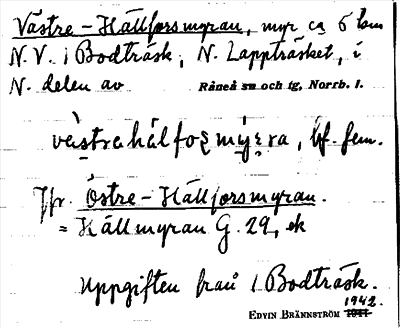 Västre-Hällforsmyran, myr ca 5 km
N.V. i Bodträsk, N. Lappträsket, i
N. delen av Råneå sn och tg, Norrb. l.
västrahälfosmýrra, bf. fem.
Jfr. Östre-Hällforsmyran.
= Hällmyran G. 29, ek
Uppgiften från 1 Bodträsk.
1942.
EDVIN BRÄNNSTRÖM 1941